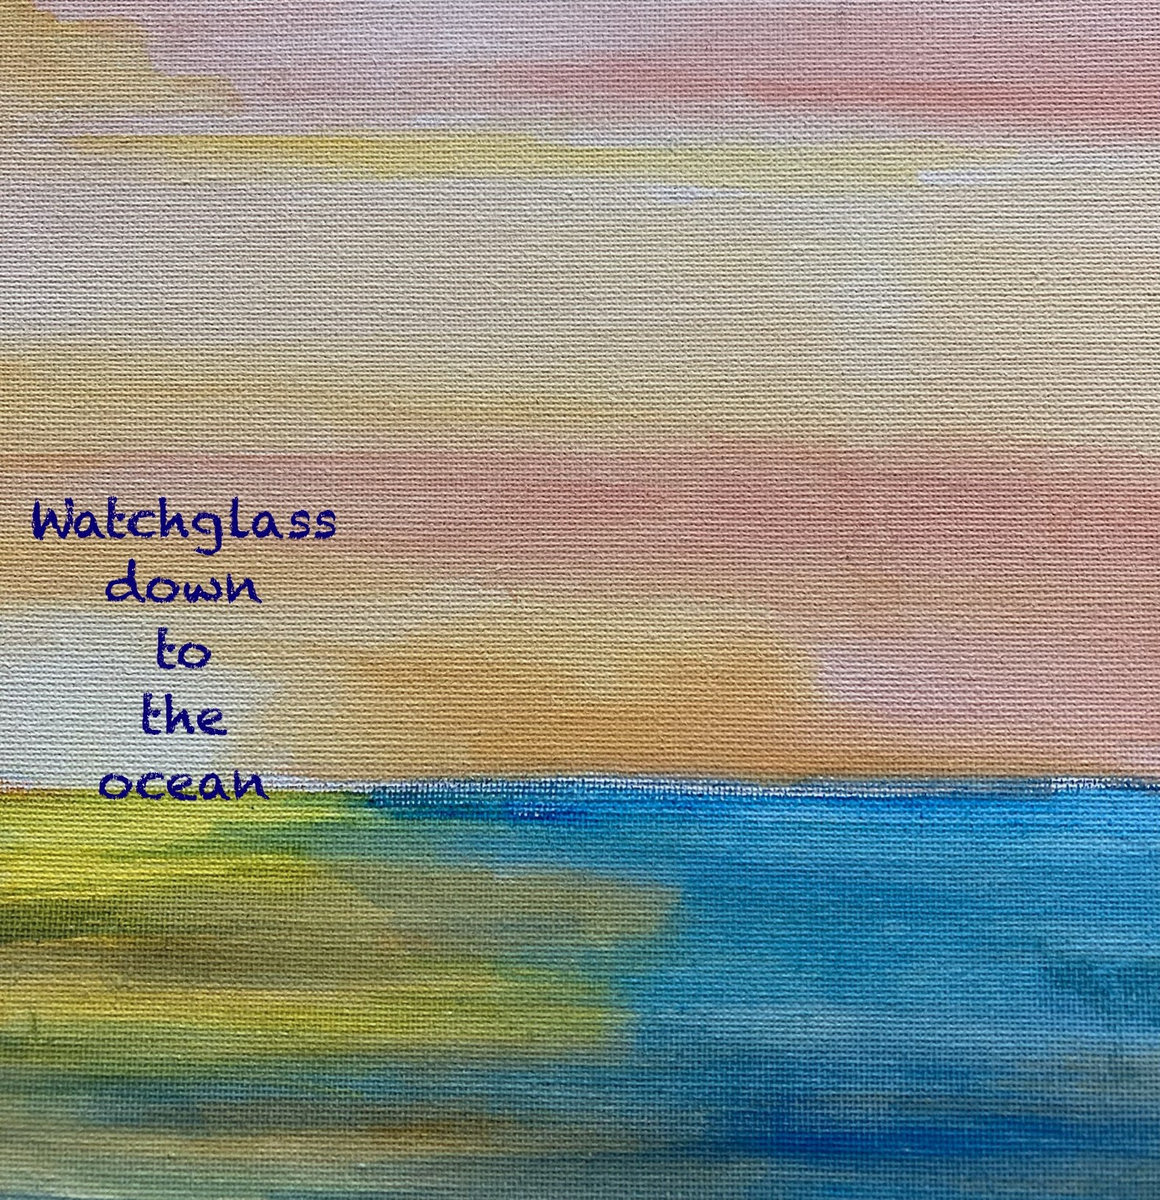 Watchglass
down
to
the
ocean